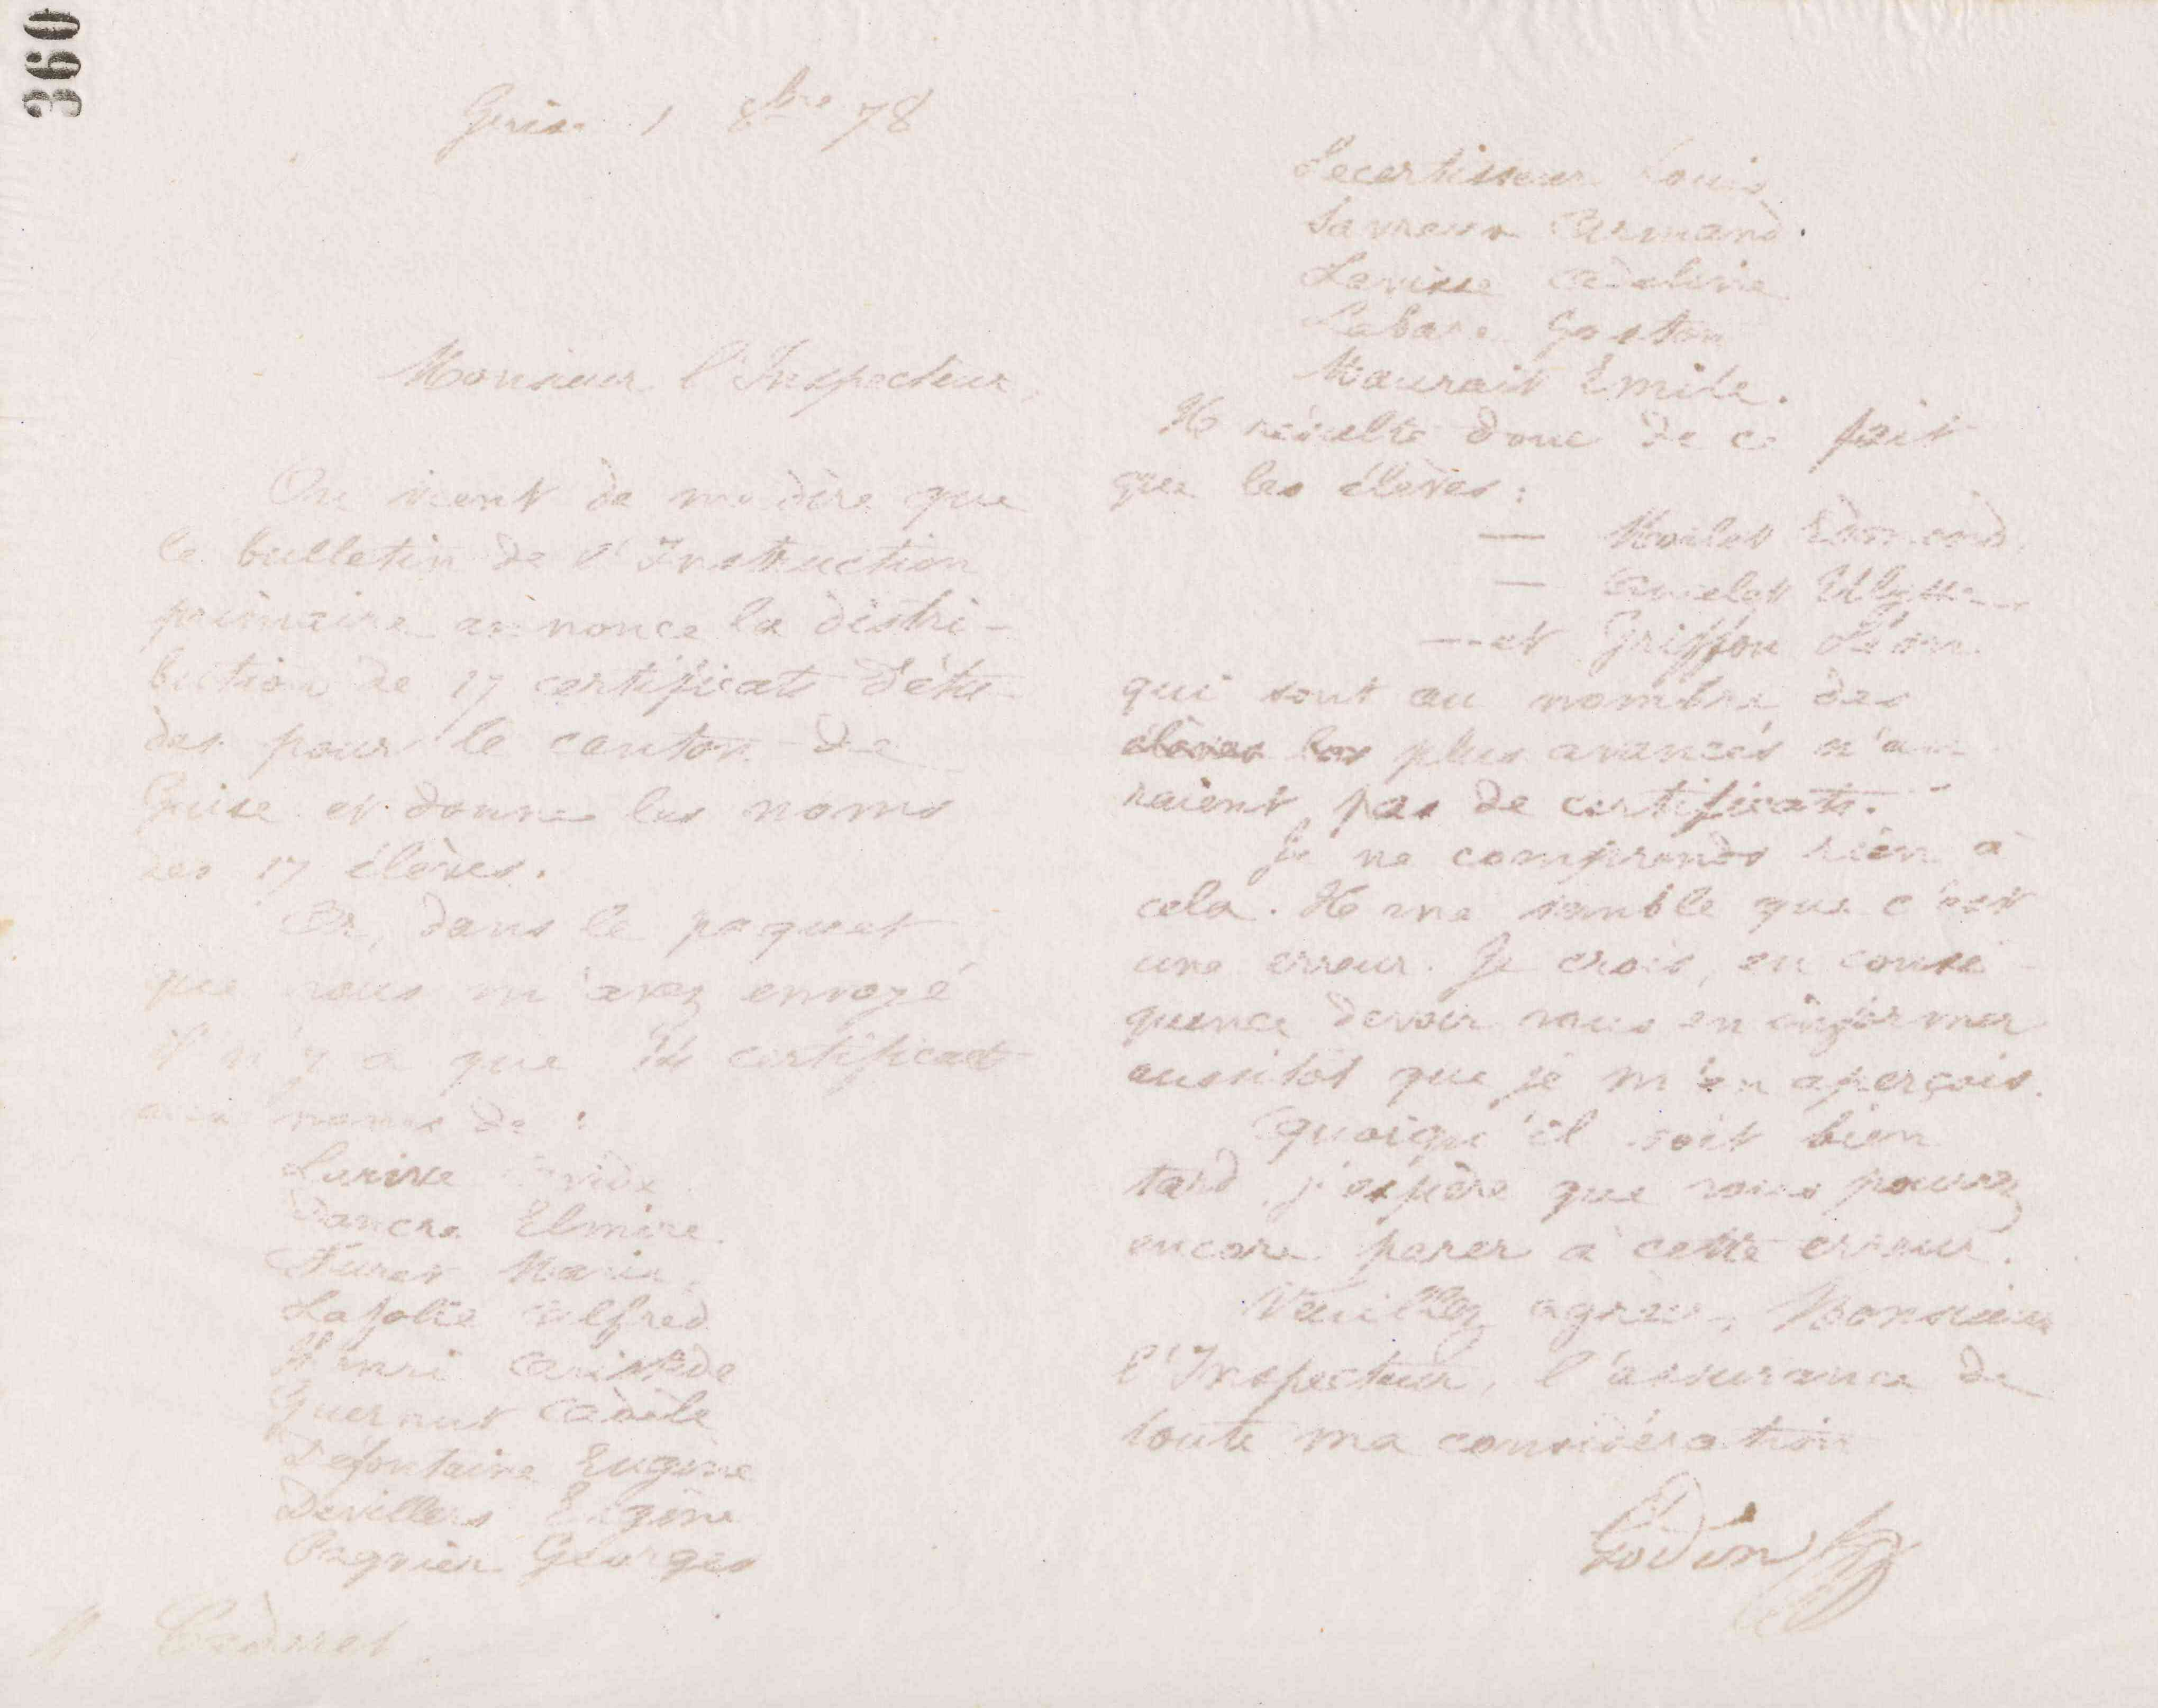 360
Guise 1 8bre 78
Monsieur l'Inspecteur,
On vient de me dire que
le bulletin de l'Instruction
primaire annonce la distri-
bution de 17 certificats d'étu-
des pour le canton de
Guise et donne les noms
des 17 élèves.
Or, dans le paquet
que vous m'avez envoyé
il n'y a que 14 certificats
aux noms de :
Larive
Dancre Elmire
Maria
Lapolie Alfred
Henri Aristide
Guernut Adèle
Defontaine Eugène
Devillers Eugène
Pagnien Georges
M Cadoret
Lecertisseur Louis
Savreux Armand.
Lavisse Adeline
Gaston
Maurait Emile.
Il résulte donc de ce fait
que les élèves :
— Edmond
— Ulysse
— et Griffon Léon
qui sont au nombre des
élèves les plus avancés n'au-
raient pas de certificats.
Je ne comprends rien à
cela. Il me semble que c'est
une erreur. Je crois, en consé-
quence devoir vous en informer
aussitôt que je m'en aperçois.
Quoiqu'il soit bien
tard, j'espère que vous pourrez
encore parer à cette erreur.
Veuillez agréer, Monsieur
l'Inspecteur, l'assurance de
toute ma considération
Godin